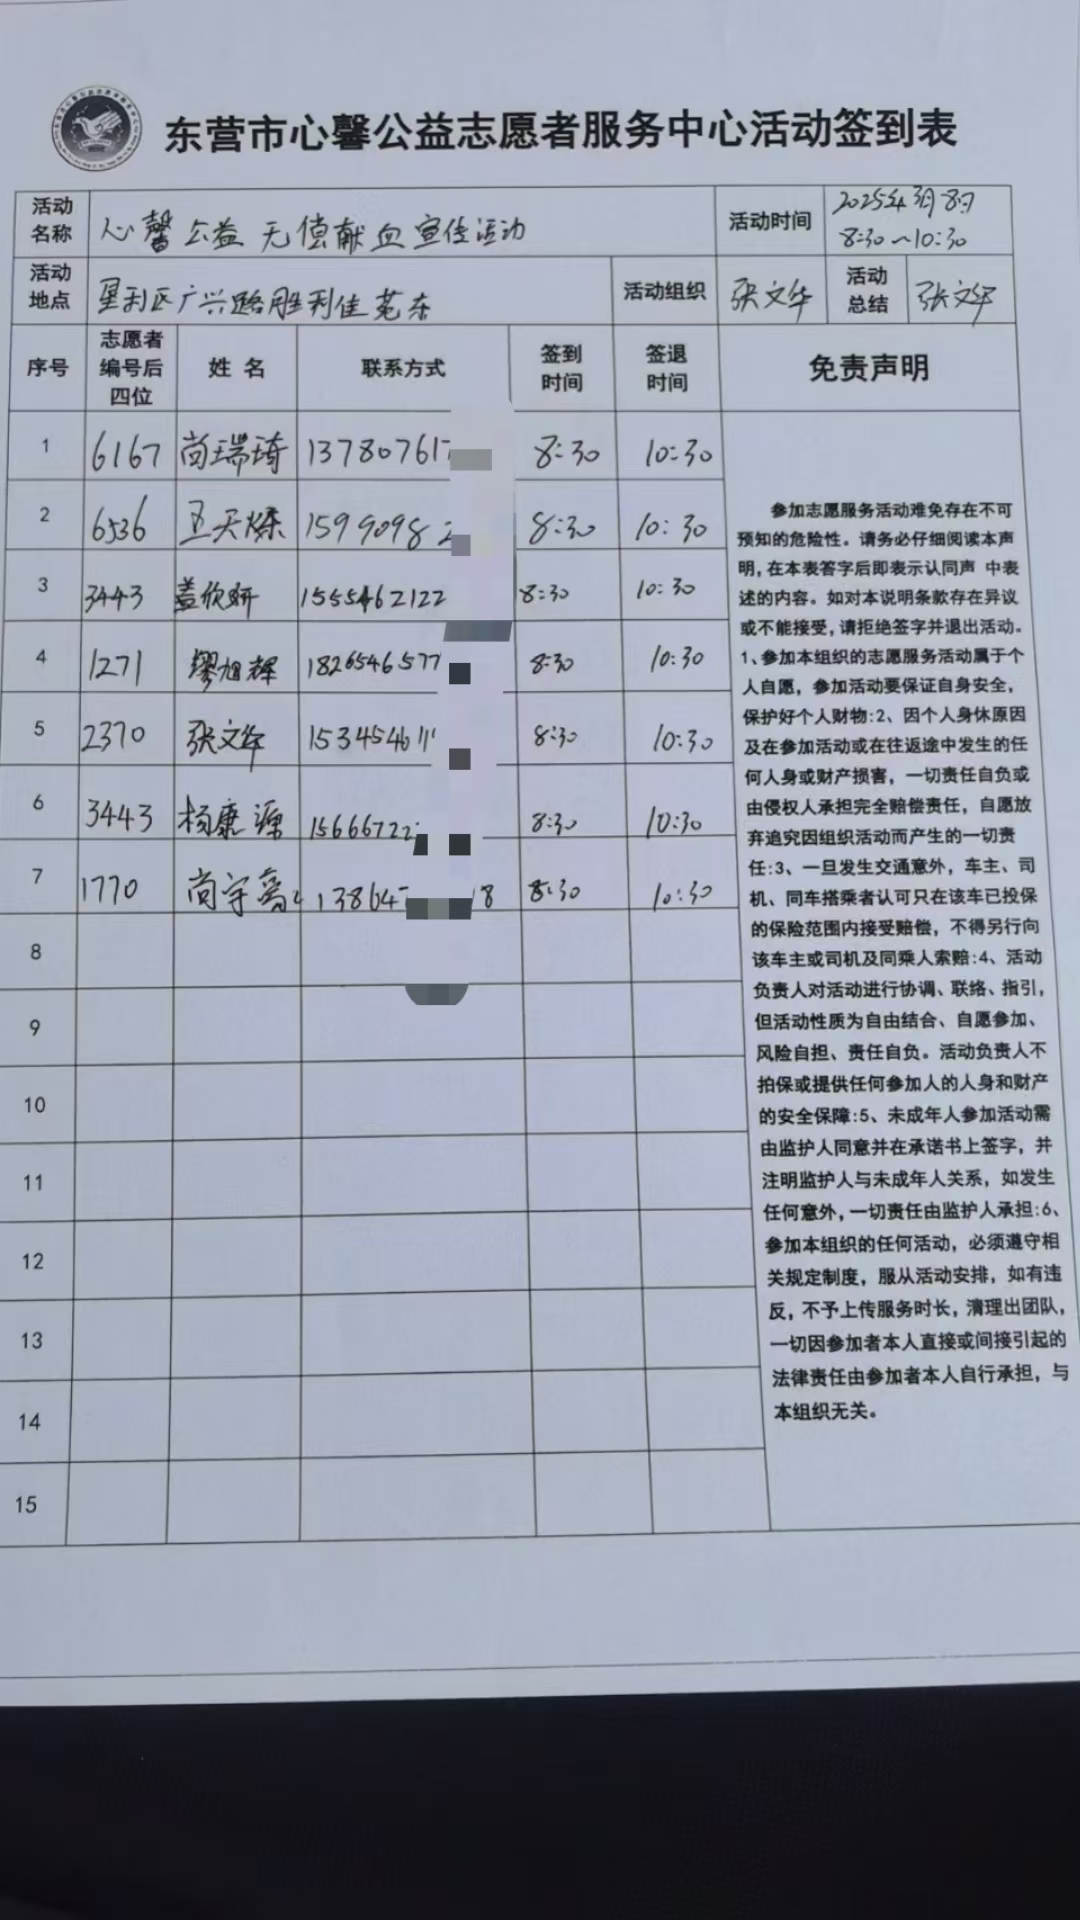 东营市心馨公益志愿者服务中心活动签到表
活动名称 心馨公益 无偿献血宣传活动 活动时间 2025年3月8日 8:30~10:30
活动地点 垦利区广兴路胜利佳苑东 活动组织 张文华 活动总结 张文华
序号 志愿者编号后四位 姓名 联系方式 签到时间 签退时间 免责声明
1 6167 尚瑞琦 137807617 8:30 10:30
2 6536 王天烁 15990982 8:30 10:30
3 3443 盖欣妍 1555462122 8:30 10:30
4 1271 缪旭辉 1826546577 8:30 10:30
5 2370 张文华 153454611 8:30 10:30
6 3443 杨康源 15666722 8:30 10:30
7 1770 尚宇 13864 18 8:30 10:30
8
9
10
11
12
13
14
15
参加志愿服务活动难免存在不可
预知的危险性。请务必仔细阅读本声
明,在本表答字后即表示认同声 中表
述的内容。如对本说明条款存在异议
或不能接受,请拒绝签字并退出活动。
1、参加本组织的志愿服务活动属于个
人自愿，参加活动要保证自身安全，
保护好个人财物:2、因个人身休原因
及在参加活动或在往返途中发生的任
何人身或财产损害，一切责任自负或
由侵权人承担完全赔偿责任，自愿放
弃追究因组织活动而产生的一切责
任:3、一旦发生交通意外，车主、司
机、同车搭乘者认可只在该车已投保
的保险范围内接受赔偿，不得另行向
该车主或司机及同乘人索赔:4、活动
负责人对活动进行协调、联络、指引，
但活动性质为自由结合、自愿参加、
风险自担、责任自负。活动负责人不
拍保或提供任何参加人的人身和财产
的安全保障:5、未成年人参加活动需
由监护人同意并在承诺书上签字，并
注明监护人与未成年人关系，如发生
任何意外,一切责任由监护人承担:6、
参加本组织的任何活动，必须遵守相
关规定制度，服从活动安排，如有违
反，不予上传服务时长，清理出团队，
一切因参加者本人直接或间接引起的
法律责任由参加者本人自行承担，与
本组织无关。